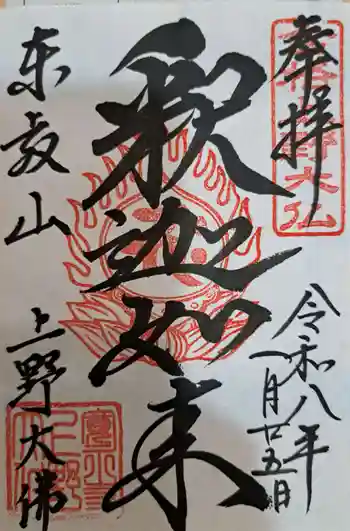 奉拝
令和八年
一月廿五日
釈迦如来
東叡山
上野大佛